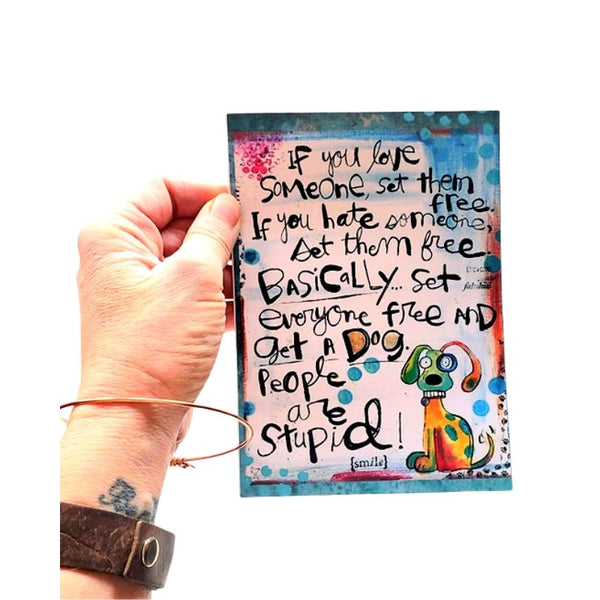 If you love
Someone, set them
free.
If you hate someone,
set them free.
BASiCaLLY... set
everyone free AND
get A DOg.
People
are
Stupid!
{smile}